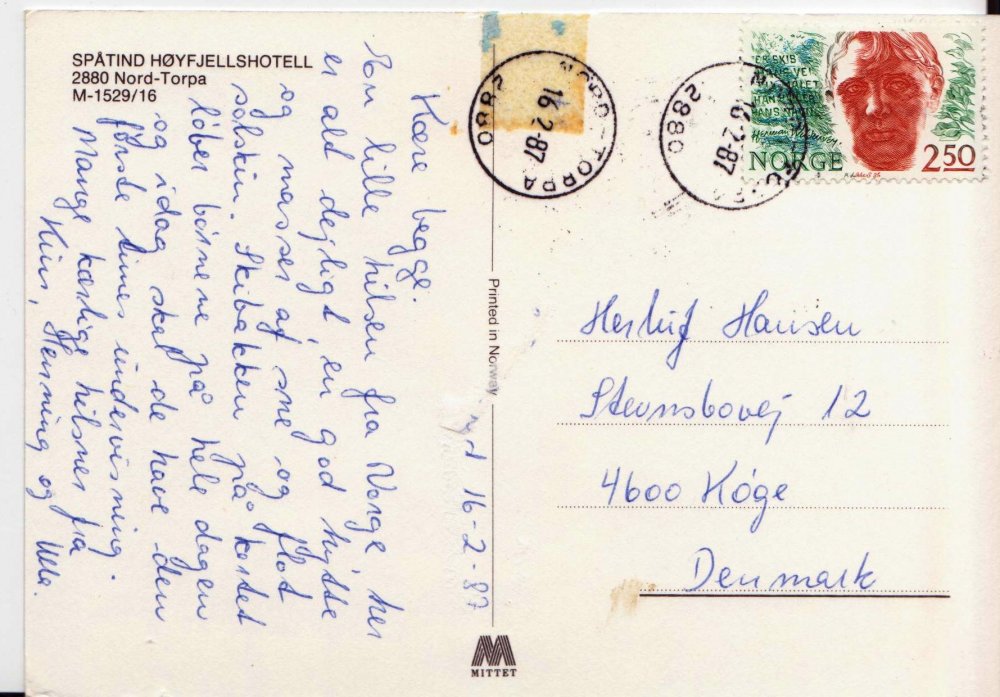 SPÅTIND HØYFJELLSHOTELL
2880 Nord-Torpa
M-1529/16
Kære begge.
Son lille hilsen fra Norge her
er alt dejligt, en god hytte
og masser af sne og flot
solskin. Skibakken på
løber børnene på hele dagen
og idag skal de have den
første times undervisning.
Mange kærlige hilsner fra
Henning og Ulla.
16-2-87
Printed in Norway
MITTET
2880 NORD-TORPA
16.2-87
2880
16.2-87
NORGE
2.50
Herluf Hansen
Stevnsbovej 12
4600 Køge
Denmark